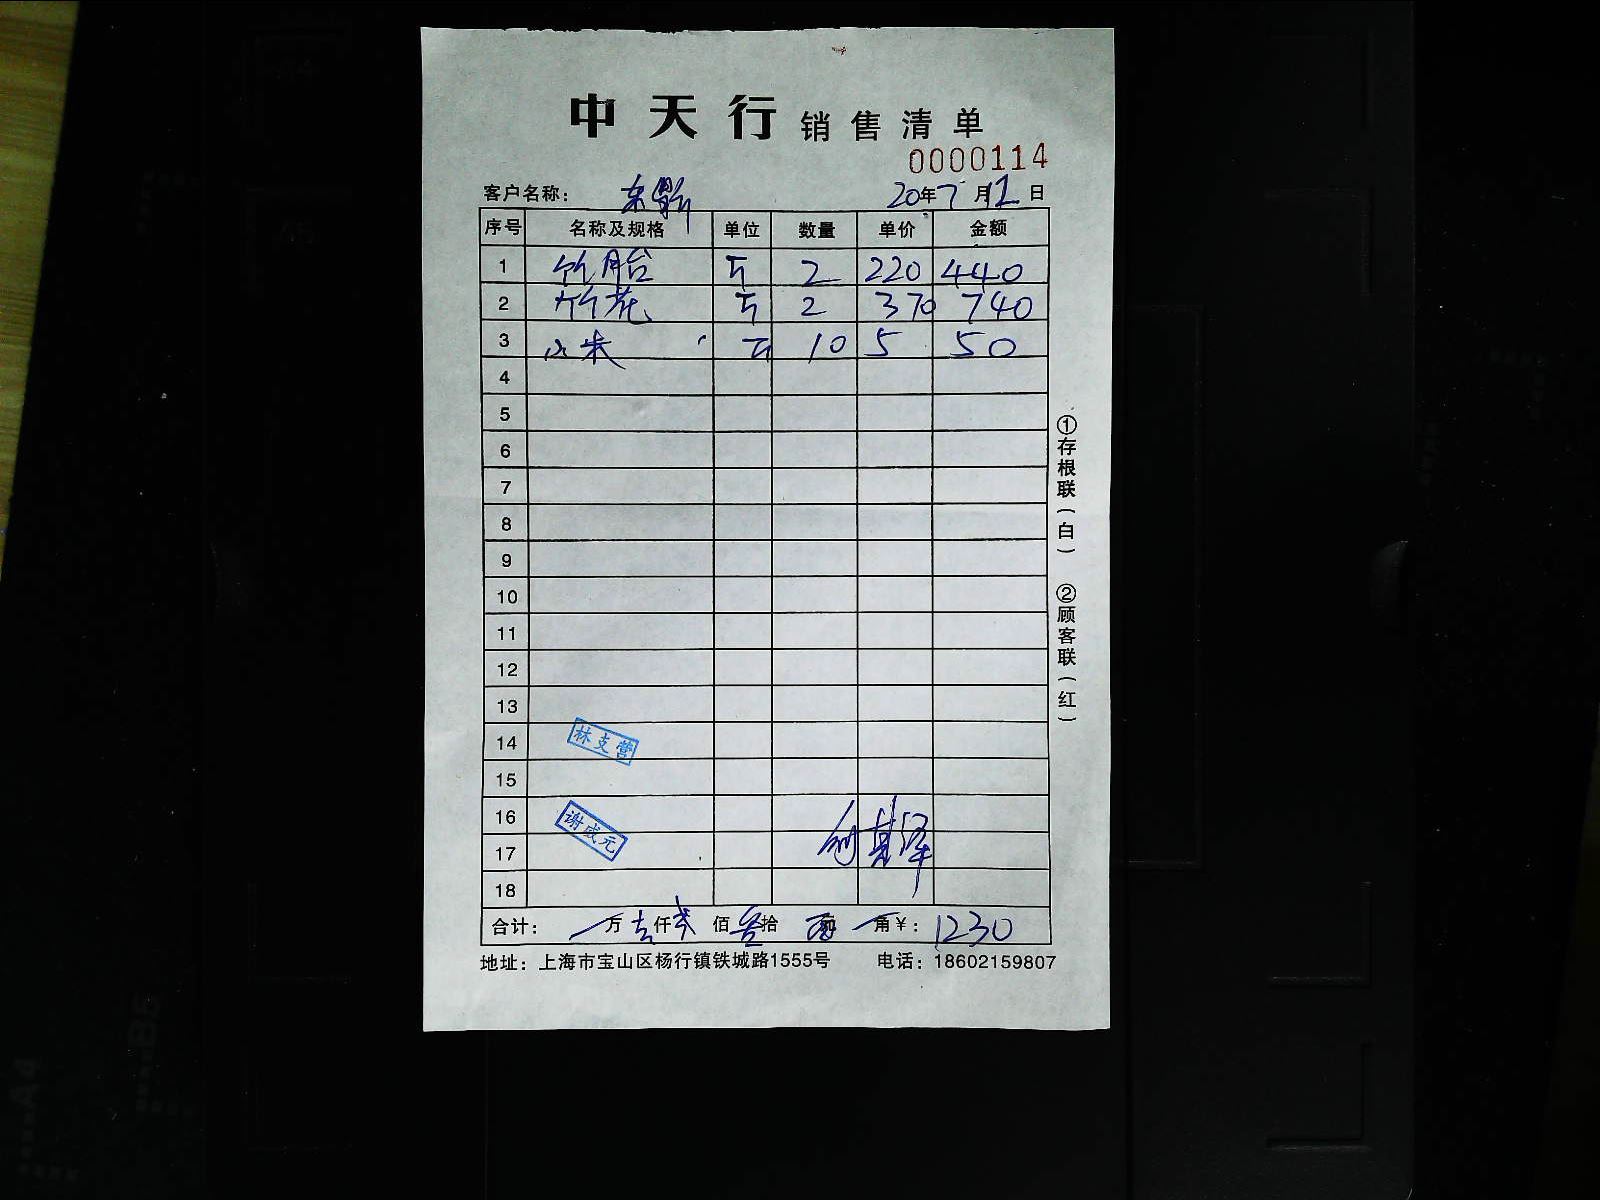 中天行 销售清单
0000114
客户名称： 20年7月 日
序号 名称及规格 单位 数量 单价 金额
1 竹胎 2 220 440
2 竹花 2 370 740
3 小米 10 5 50
4
5
6
7
8
9
10
11
12
13
14 林支营
15
16 谢成元
17
18
合计： 万 仟 佰 拾 角¥：1230
地址：上海市宝山区杨行镇铁城路1555号 电话：18602159807
①存根联（白） ②顾客联（红）